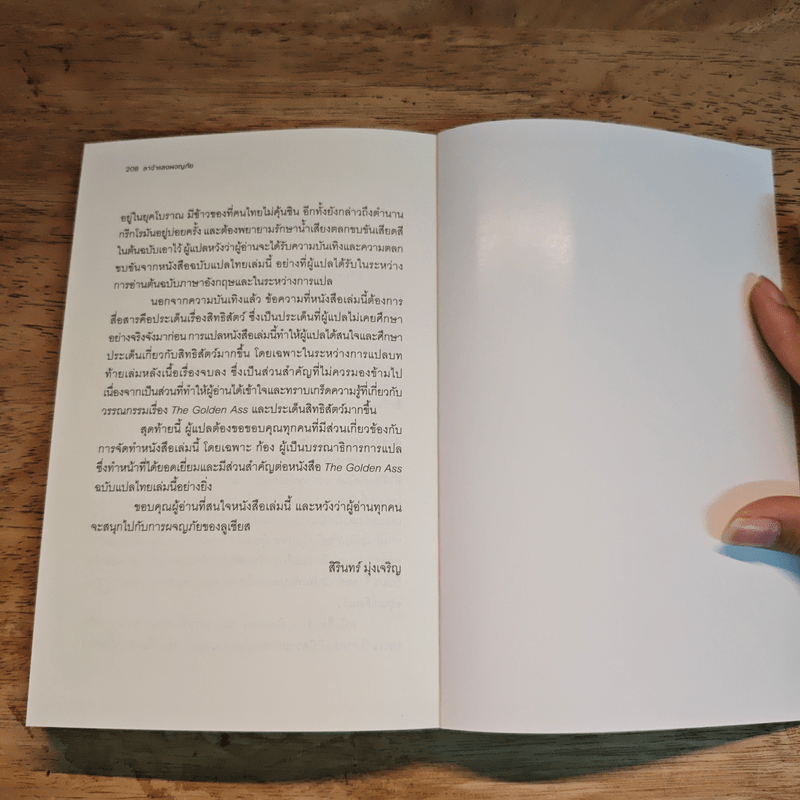 208 ลาจำแลงผจญภัย
อยู่ในยุคโบราณ มีข้าวของที่คนไทยไม่คุ้นชิน อีกทั้งยังกล่าวถึงตำนาน
กรีกโรมันอยู่บ่อยครั้ง และต้องพยายามรักษาน้ำเสียงตลกขบขันเสียดสี
ในต้นฉบับเอาไว้ ผู้แปลหวังว่าผู้อ่านจะได้รับความบันเทิงและความตลก
ขบขันจากหนังสือฉบับแปลไทยเล่มนี้ อย่างที่ผู้แปลได้รับในระหว่าง
การอ่านต้นฉบับภาษาอังกฤษและในระหว่างการแปล
นอกจากความบันเทิงแล้ว ข้อความที่หนังสือเล่มนี้ต้องการ
สื่อสารคือประเด็นเรื่องสิทธิสัตว์ ซึ่งเป็นประเด็นที่ผู้แปลไม่เคยศึกษา
อย่างจริงจังมาก่อน การแปลหนังสือเล่มนี้ทำให้ผู้แปลได้สนใจและศึกษา
ประเด็นเกี่ยวกับสิทธิสัตว์มากขึ้น โดยเฉพาะในระหว่างการแปลบท
ท้ายเล่มหลังเนื้อเรื่องจบลง ซึ่งเป็นส่วนสำคัญที่ไม่ควรมองข้ามไป
เนื่องจากเป็นส่วนที่ทำให้ผู้อ่านได้เข้าใจและทราบเกร็ดความรู้ที่เกี่ยวกับ
วรรณกรรมเรื่อง The Golden Ass และประเด็นสิทธิสัตว์มากขึ้น
สุดท้ายนี้ ผู้แปลต้องขอขอบคุณทุกคนที่มีส่วนเกี่ยวข้องกับ
การจัดทำหนังสือเล่มนี้ โดยเฉพาะ ก้อง ผู้เป็นบรรณาธิการการแปล
ซึ่งทำหน้าที่ได้ยอดเยี่ยมและมีส่วนสำคัญต่อหนังสือ The Golden Ass
ฉบับแปลไทยเล่มนี้อย่างยิ่ง
ขอบคุณผู้อ่านที่สนใจหนังสือเล่มนี้ และหวังว่าผู้อ่านทุกคน
จะสนุกไปกับการผจญภัยของลูเซียส
สิรินทร์ มุ่งเจริญ